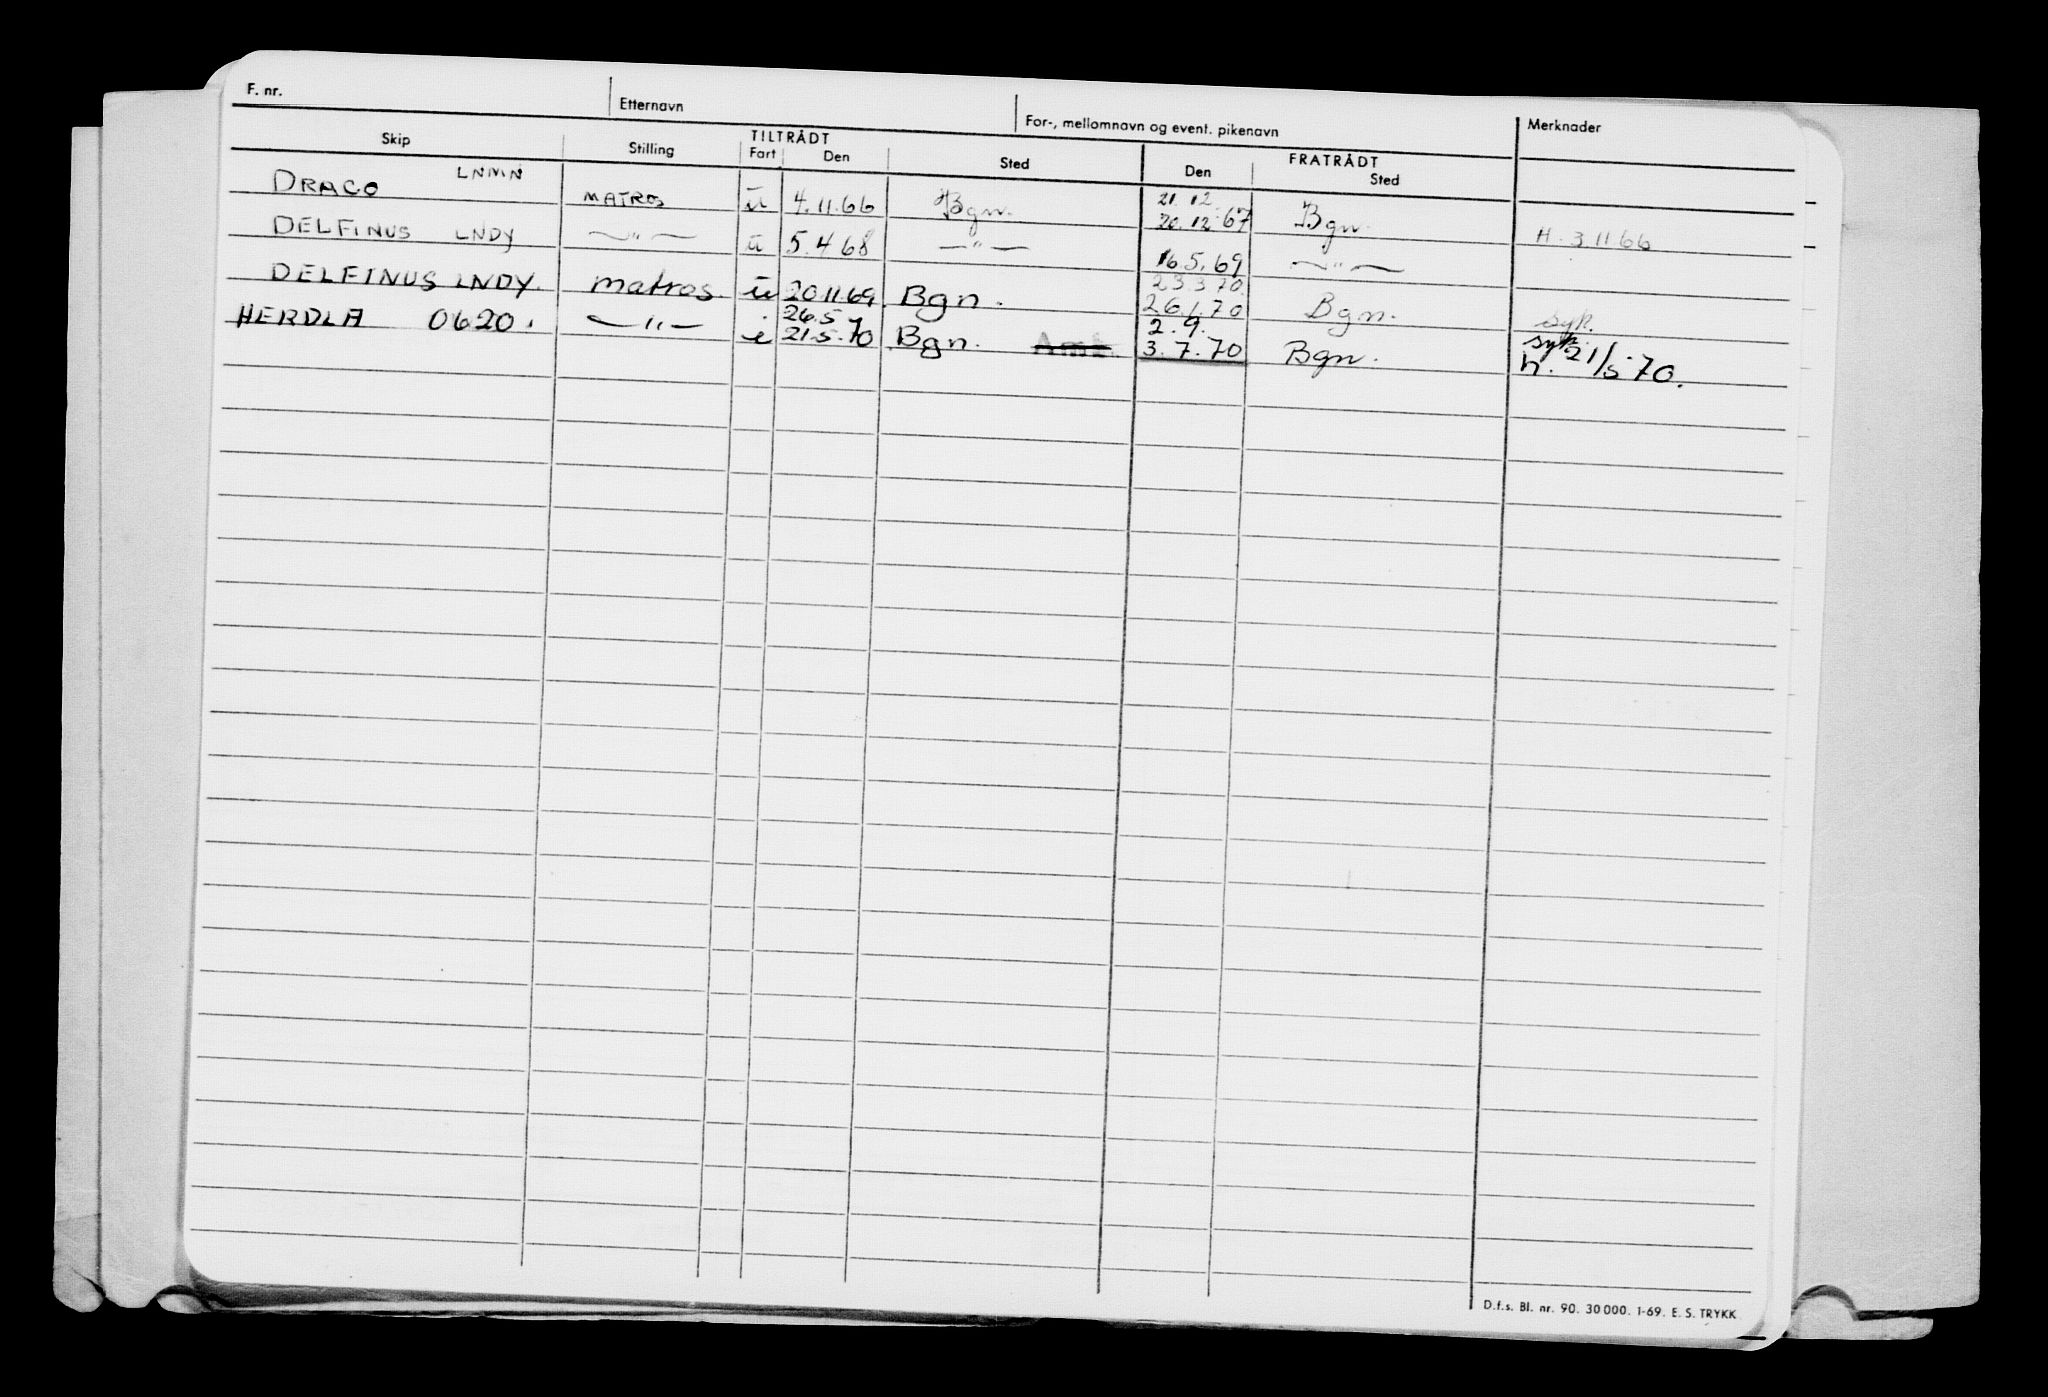 F. nr. Etternavn For-, mellomnavn og event. pikenavn Merknader
TILTRÅDT FRATRÅDT
Skip Stilling Fart Den Sted Den Sted
DRACO LNMN MATROS u 4.11.66 Bgn. 21.12. 20.12.67 Bgn. H. 3 11 66
DELFINUS LNDY —"— u 5.4 68 —"— 16.5.69 —"—
DELFINUS LNDY. matros. u 20.11.69 Bgn. 23.3.70. 26.1.70 Bgn. syk.
HERDLA 0620. —"— i 26.5 21.5.70 Bgn. 2.9. 3.7.70 Bgn. syk h. 21/5 70.
D.f.s. Bl. nr. 90. 30 000. 1-69. E. S. TRYKK